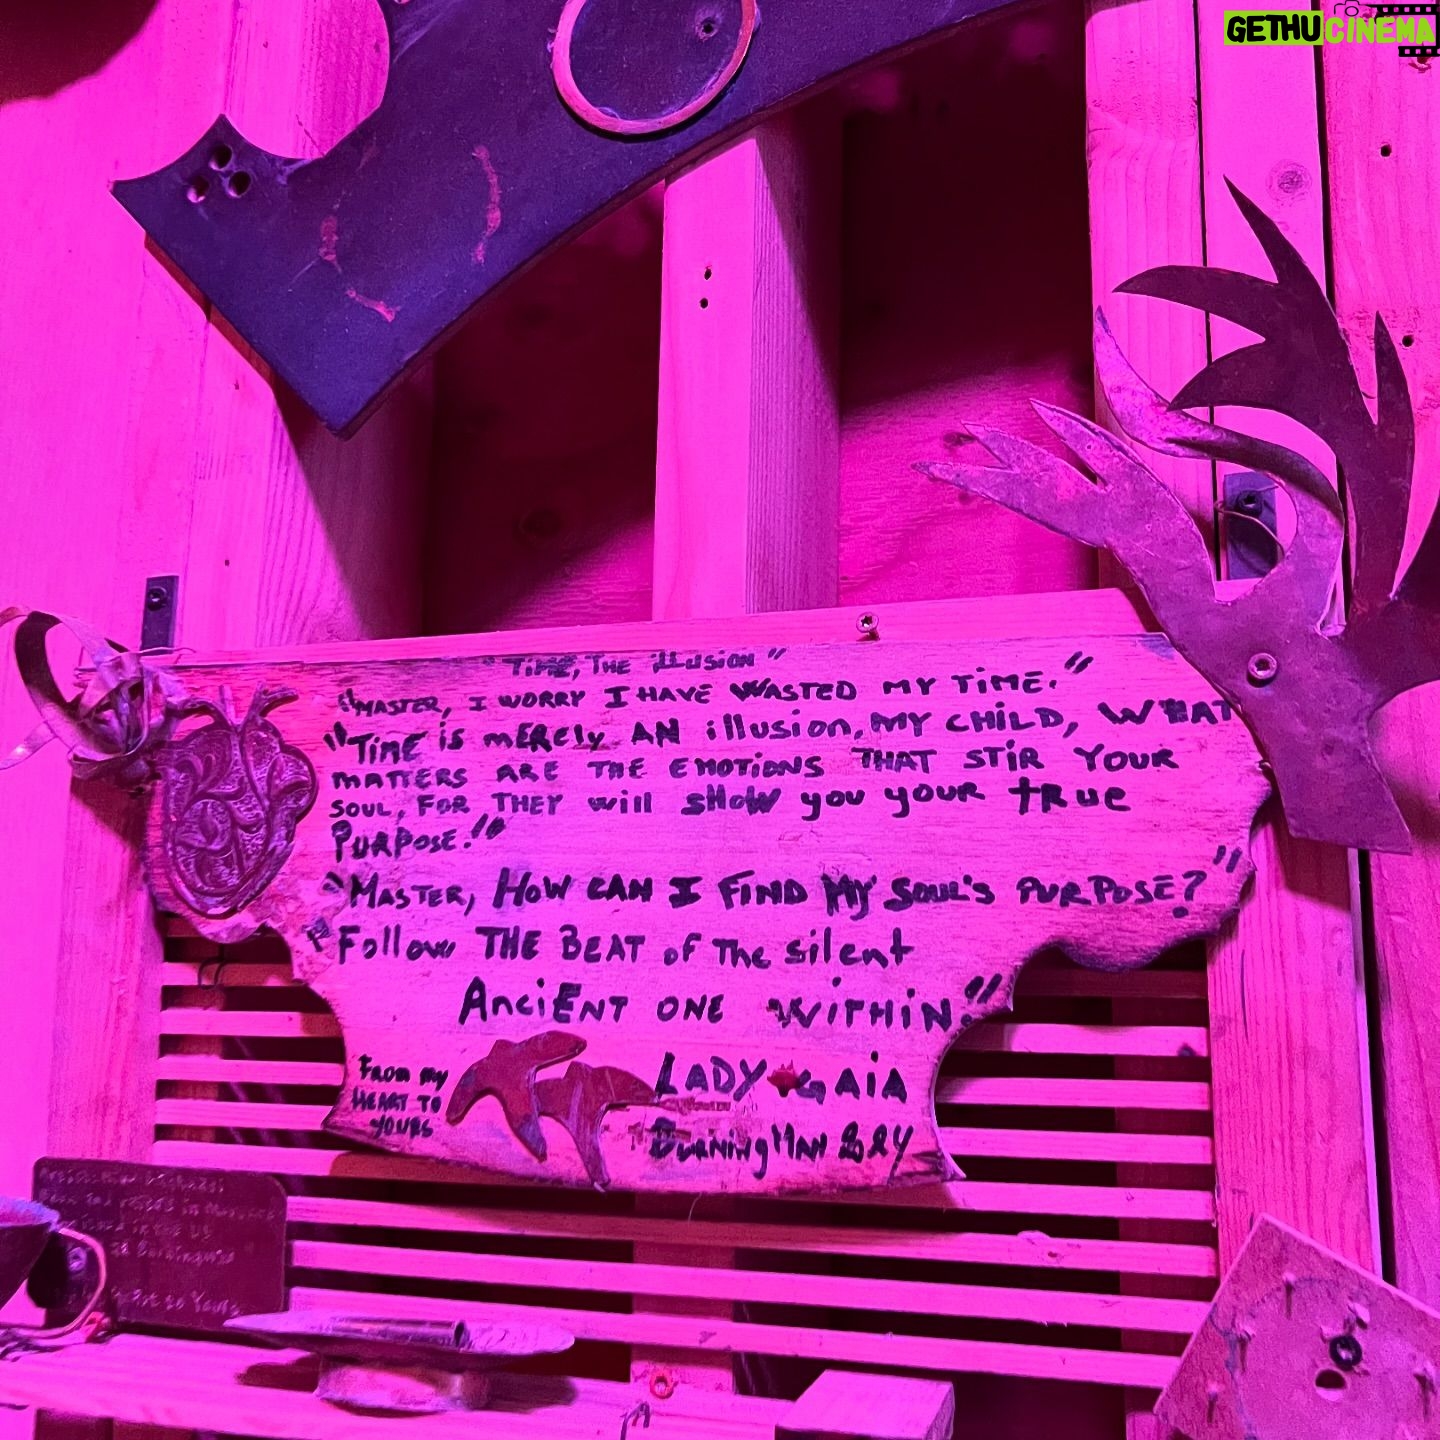 GETHU CINEMA
"TIME, THE illUSION"
"MASTER, I WORRY I HAVE WASTED MY TIME."
"TIME is mERely AN illusion, MY CHILD, WHAT
MATTERS ARE THE EMOTIONS THAT STIR YOUR
SOUL, FOR THEY will SHOW you youR tRue
PURPOSE."
"MASTER, HOW CAN I FIND MY SOUL'S PURPOSE?"
"Follow THE BEAT oF The silent
AnciENT ONE WITHiN."
FROM my
HEART TO
YOURS
LADY GAiA
BURNiNg MAN 2024